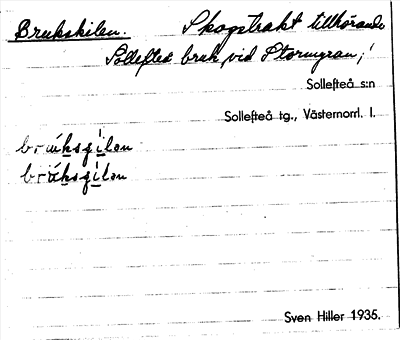 Brukskilen. Skogstrakt tillhörande
Sollefteå bruk, vid Stormyran,
Sollefteå s:n
Sollefteå tg., Västernorrl. l.
Sven Hiller 1935.